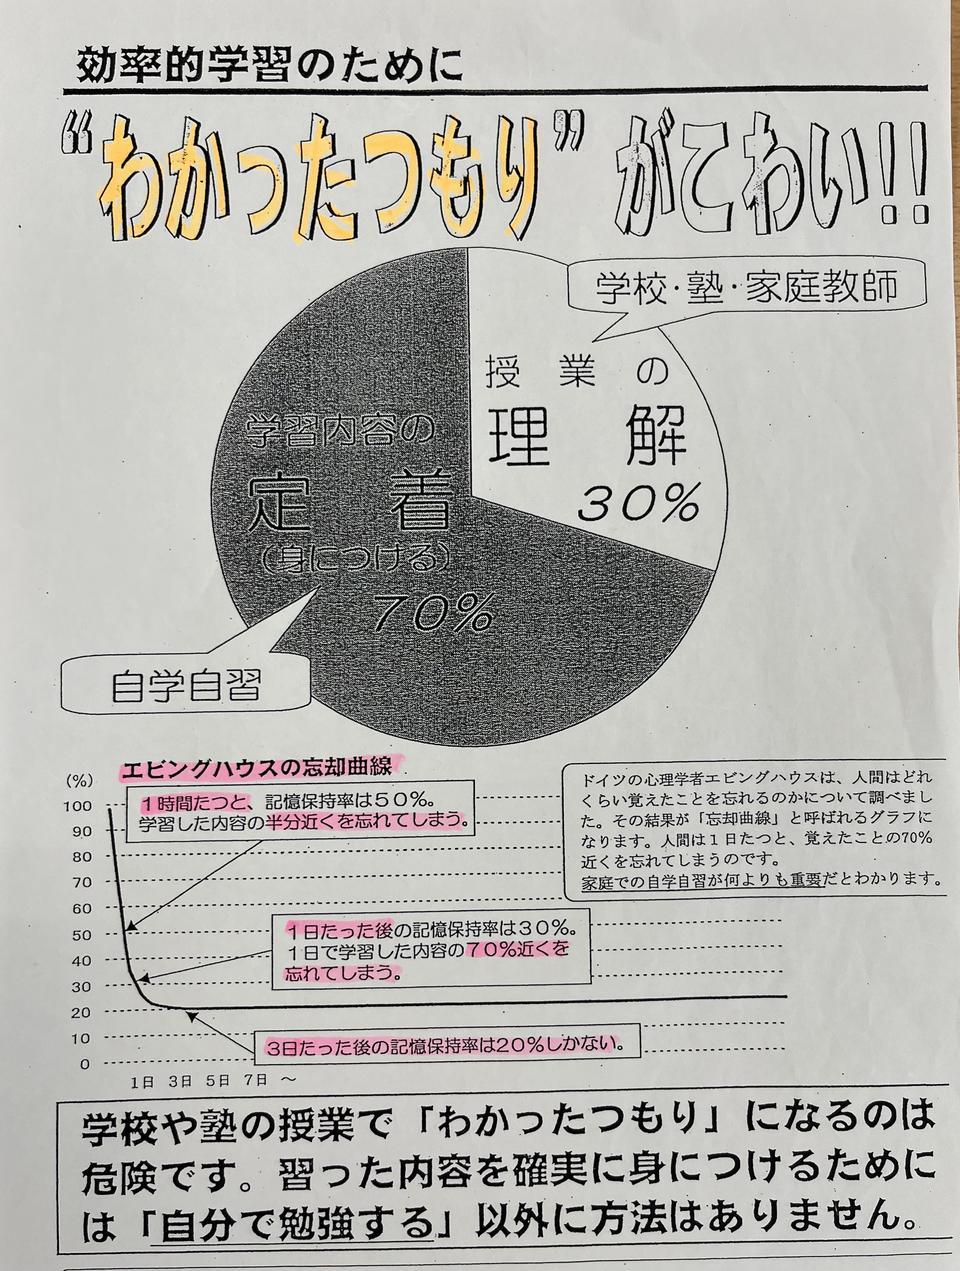 効率的学習のために
“わかったつもり”がこわい!!
学校・塾・家庭教師
授業の
理解
30%
学習内容の
定着
(身につける)
70%
自学自習
エビングハウスの忘却曲線
(%)
100
90
80
70
60
50
40
30
20
10
0
1時間たつと、記憶保持率は50%。
学習した内容の半分近くを忘れてしまう。
1日たった後の記憶保持率は30%。
1日で学習した内容の70%近くを
忘れてしまう。
3日たった後の記憶保持率は20%しかない。
1日 3日 5日 7日 ～
ドイツの心理学者エビングハウスは、人間はどれ
くらい覚えたことを忘れるのかについて調べまし
た。その結果が「忘却曲線」と呼ばれるグラフに
なります。人間は1日たつと、覚えたことの70%
近くを忘れてしまうのです。
家庭での自学自習が何よりも重要だとわかります。
学校や塾の授業で「わかったつもり」になるのは
危険です。習った内容を確実に身につけるために
は「自分で勉強する」以外に方法はありません。